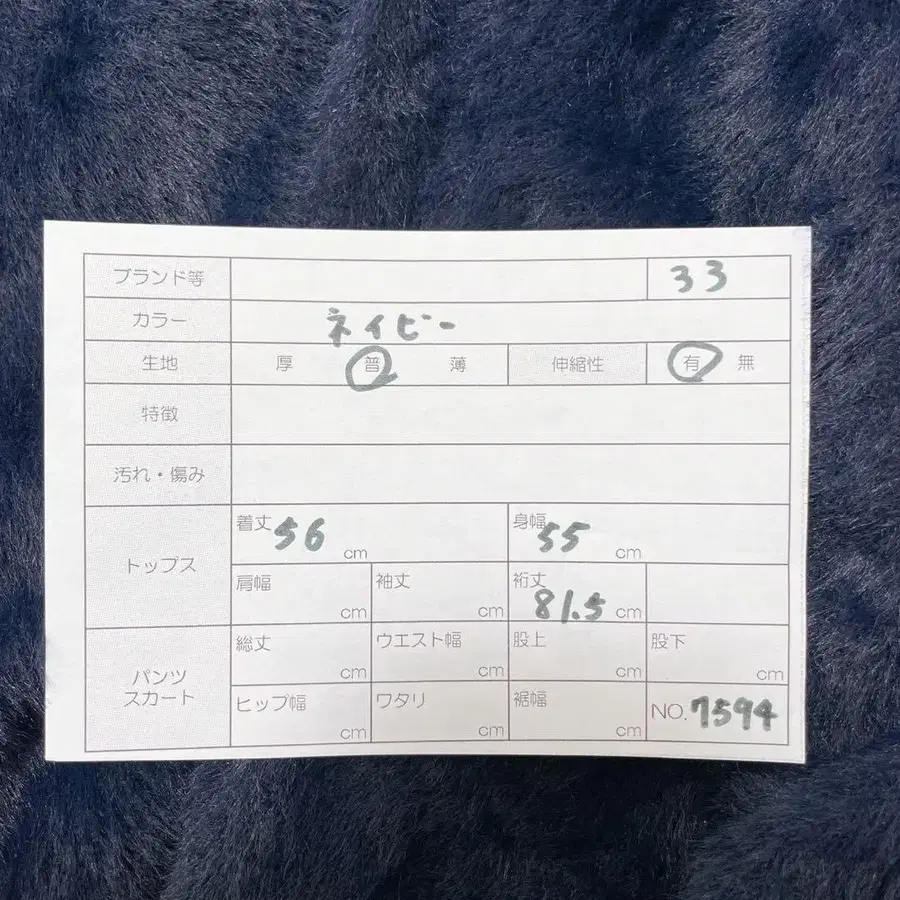 ブランド等 33
カラー ネイビー
生地 厚 普 薄 伸縮性 有 無
特徴
汚れ・傷み
トップス
着丈 56 cm 身幅 55 cm
肩幅 cm 袖丈 cm 裄丈 81.5 cm
パンツ
スカート
総丈 cm ウエスト幅 cm 股上 cm 股下 cm
ヒップ幅 cm ワタリ cm 裾幅 cm NO. 7594